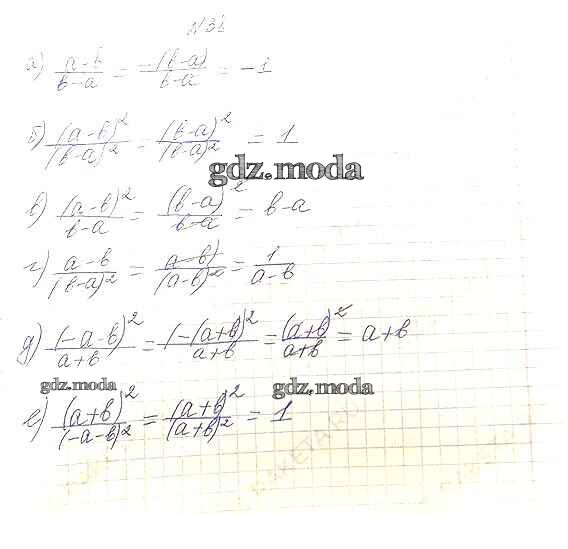 № 31
а) (a-b)/(b-a) = -(b-a)/(b-a) = -1
б) (a-b)²/(b-a)² = (b-a)²/(b-a)² = 1
gdz.moda
в) (a-b)²/(b-a) = (b-a)²/(b-a) = b-a
г) (a-b)/(b-a)² = (a-b)/(a-b)² = 1/(a-b)
д) (-a-b)²/(a+b) = (-(a+b))²/(a+b) = (a+b)²/(a+b) = a+b
gdz.moda gdz.moda
е) (a+b)²/(-a-b)² = (a+b)²/(a+b)² = 1